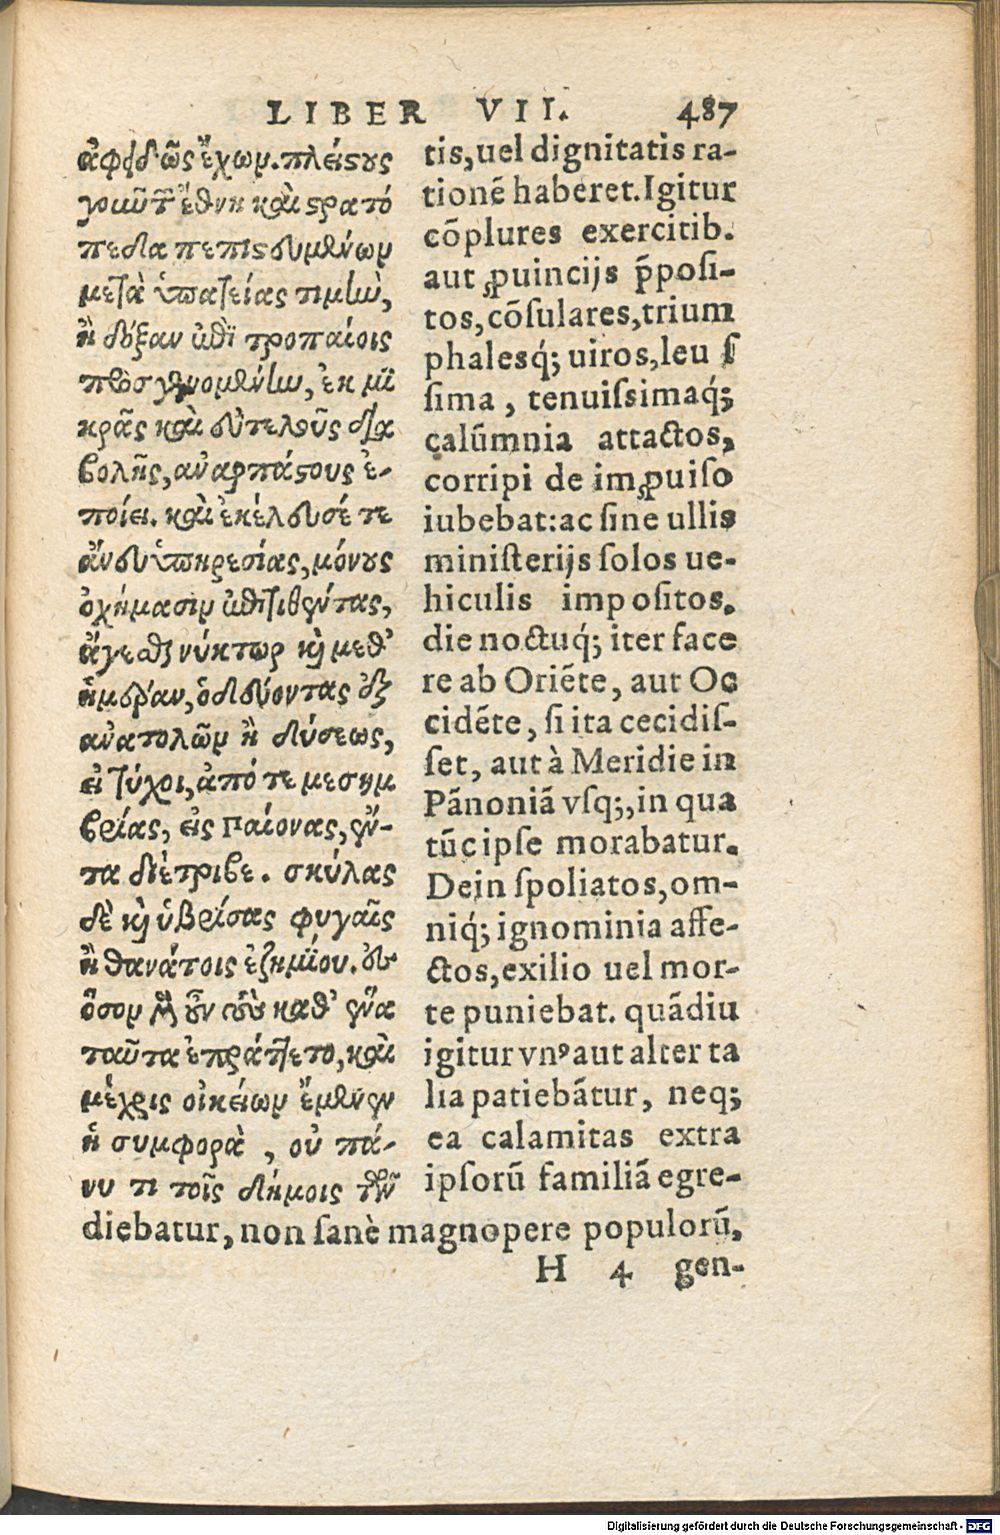 LIBER VII. 487
ἀφειδῶς ἔχων. πλείςους
γοιῶ τ ἔθνη καὶ ςρατό
πεδα πεπιςευμένων
μετὰ ὑπατείας τιμὼ,
ἢ δόξαν ἐπὶ τροπαίοις
προσγενομένω, ἐκ μι
κρᾶς καὶ εὐτελοῦς δια
βολῆς, ἀναρπάςους ἐ-
ποίει. καὶ ἐκέλευσέ τε
ἄνευ ὑπηρεσίας, μόνους
ὀχήμασιν ἐπιτιθέντας,
ἄγεσθαι νύκτωρ κὴ μεθ'
ἡμέραν, ὁδεύοντας ἐξ
ἀνατολῶν ἢ δύσεως,
εἰ τύχοι, ἀπό τε μεσημ
βρίας, εἰς Παίονας, ἔν-
τα διέτριβε. σκύλας
δὲ κὴ ὑβρίσας φυγαῖς
ἢ θανάτοις ἐζημίου. ἐν
ὅσον μὲν οὖν καθ' ἕνα
ταῦτα ἐπράττετο, καὶ
μέχρις οἰκείων ἔμενεν
ἡ συμφορὰ , οὐ πά-
νυ τι τοῖς δήμοις τῶν
tis, uel dignitatis ra-
tionē haberet. Igitur
cōplures exercitib.
aut ꝓuincijs p̄posi-
tos, cōsulares, trium
phalesq́; uiros, leu ſ
ſima , tenuiſsimaq́;
calūmnia attactos,
corripi de imꝓuiſo
iubebat: ac ſine ullis
miniſterijs ſolos ue-
hiculis impoſitos.
die noctuq́; iter face
re ab Oriēte, aut Oc
cidēte, ſi ita cecidiſ-
ſet, aut à Meridie in
Pānoniā vſq;, in qua
tūc ipſe morabatur.
Dein ſpoliatos, om-
niq́; ignominia affe-
ctos, exilio uel mor-
te puniebat. quādiu
igitur vnꝰ aut alter ta
lia patiebātur, neq;
ea calamitas extra
ipſorū familiā egre-
diebatur, non ſanè magnopere populorū,
H 4 gen-
Digitalisierung gefördert durch die Deutsche Forschungsgemeinschaft - DFG